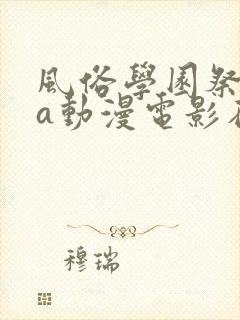 風俗學園祭
a動漫電影在
穆瑞